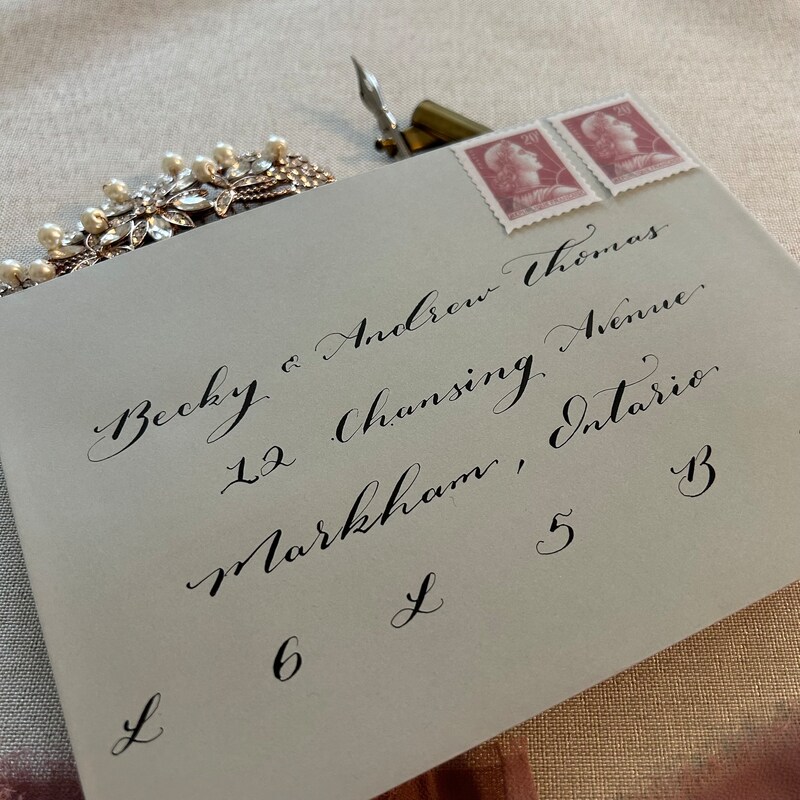 20F
20F
Becky & Andrew Thomas
12 Chansing Avenue
Markham, Ontario
L 6 L 5 B